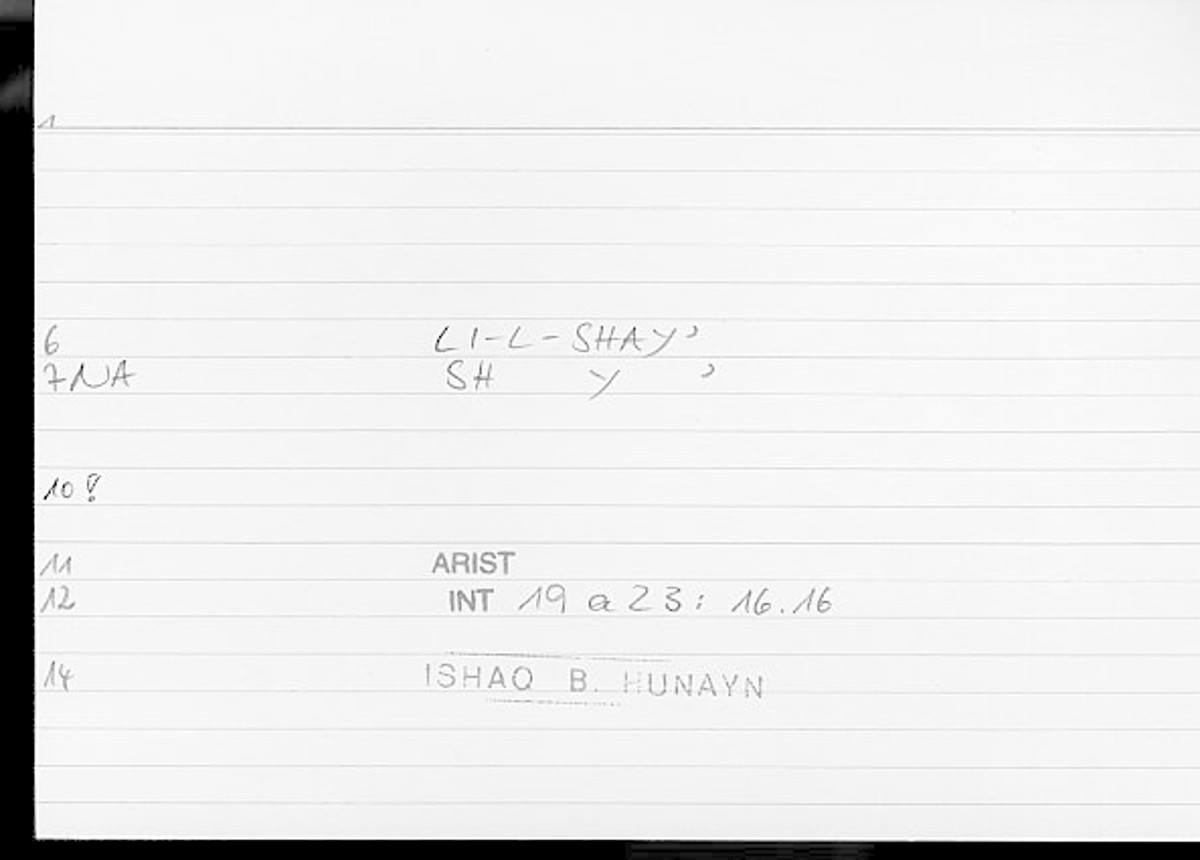 1
6 LI-L-SHAY’
7NA SH Y ’
10!
11 ARIST
12 INT 19 a 23: 16.16
14 ISHAQ B. HUNAYN